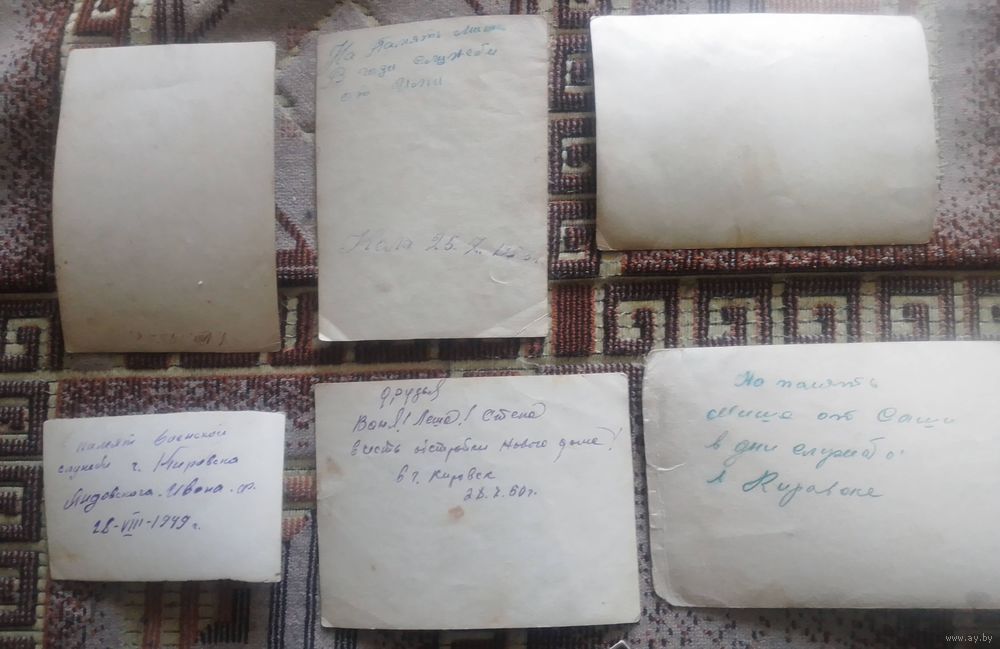 На память Мише
В годы службы
от Коли
Коля 25.
память военской
службы г. Кировска
Яндовского. Ивона. ф.
28-VIII-1949 г.
Друзья
Ваня! Леша! Степа
в честь отстройки Нового дома!
в г. Кировск
28.X.50г.
На память
Мише от Саши
в дни службы
в Кировске
www.ay.by